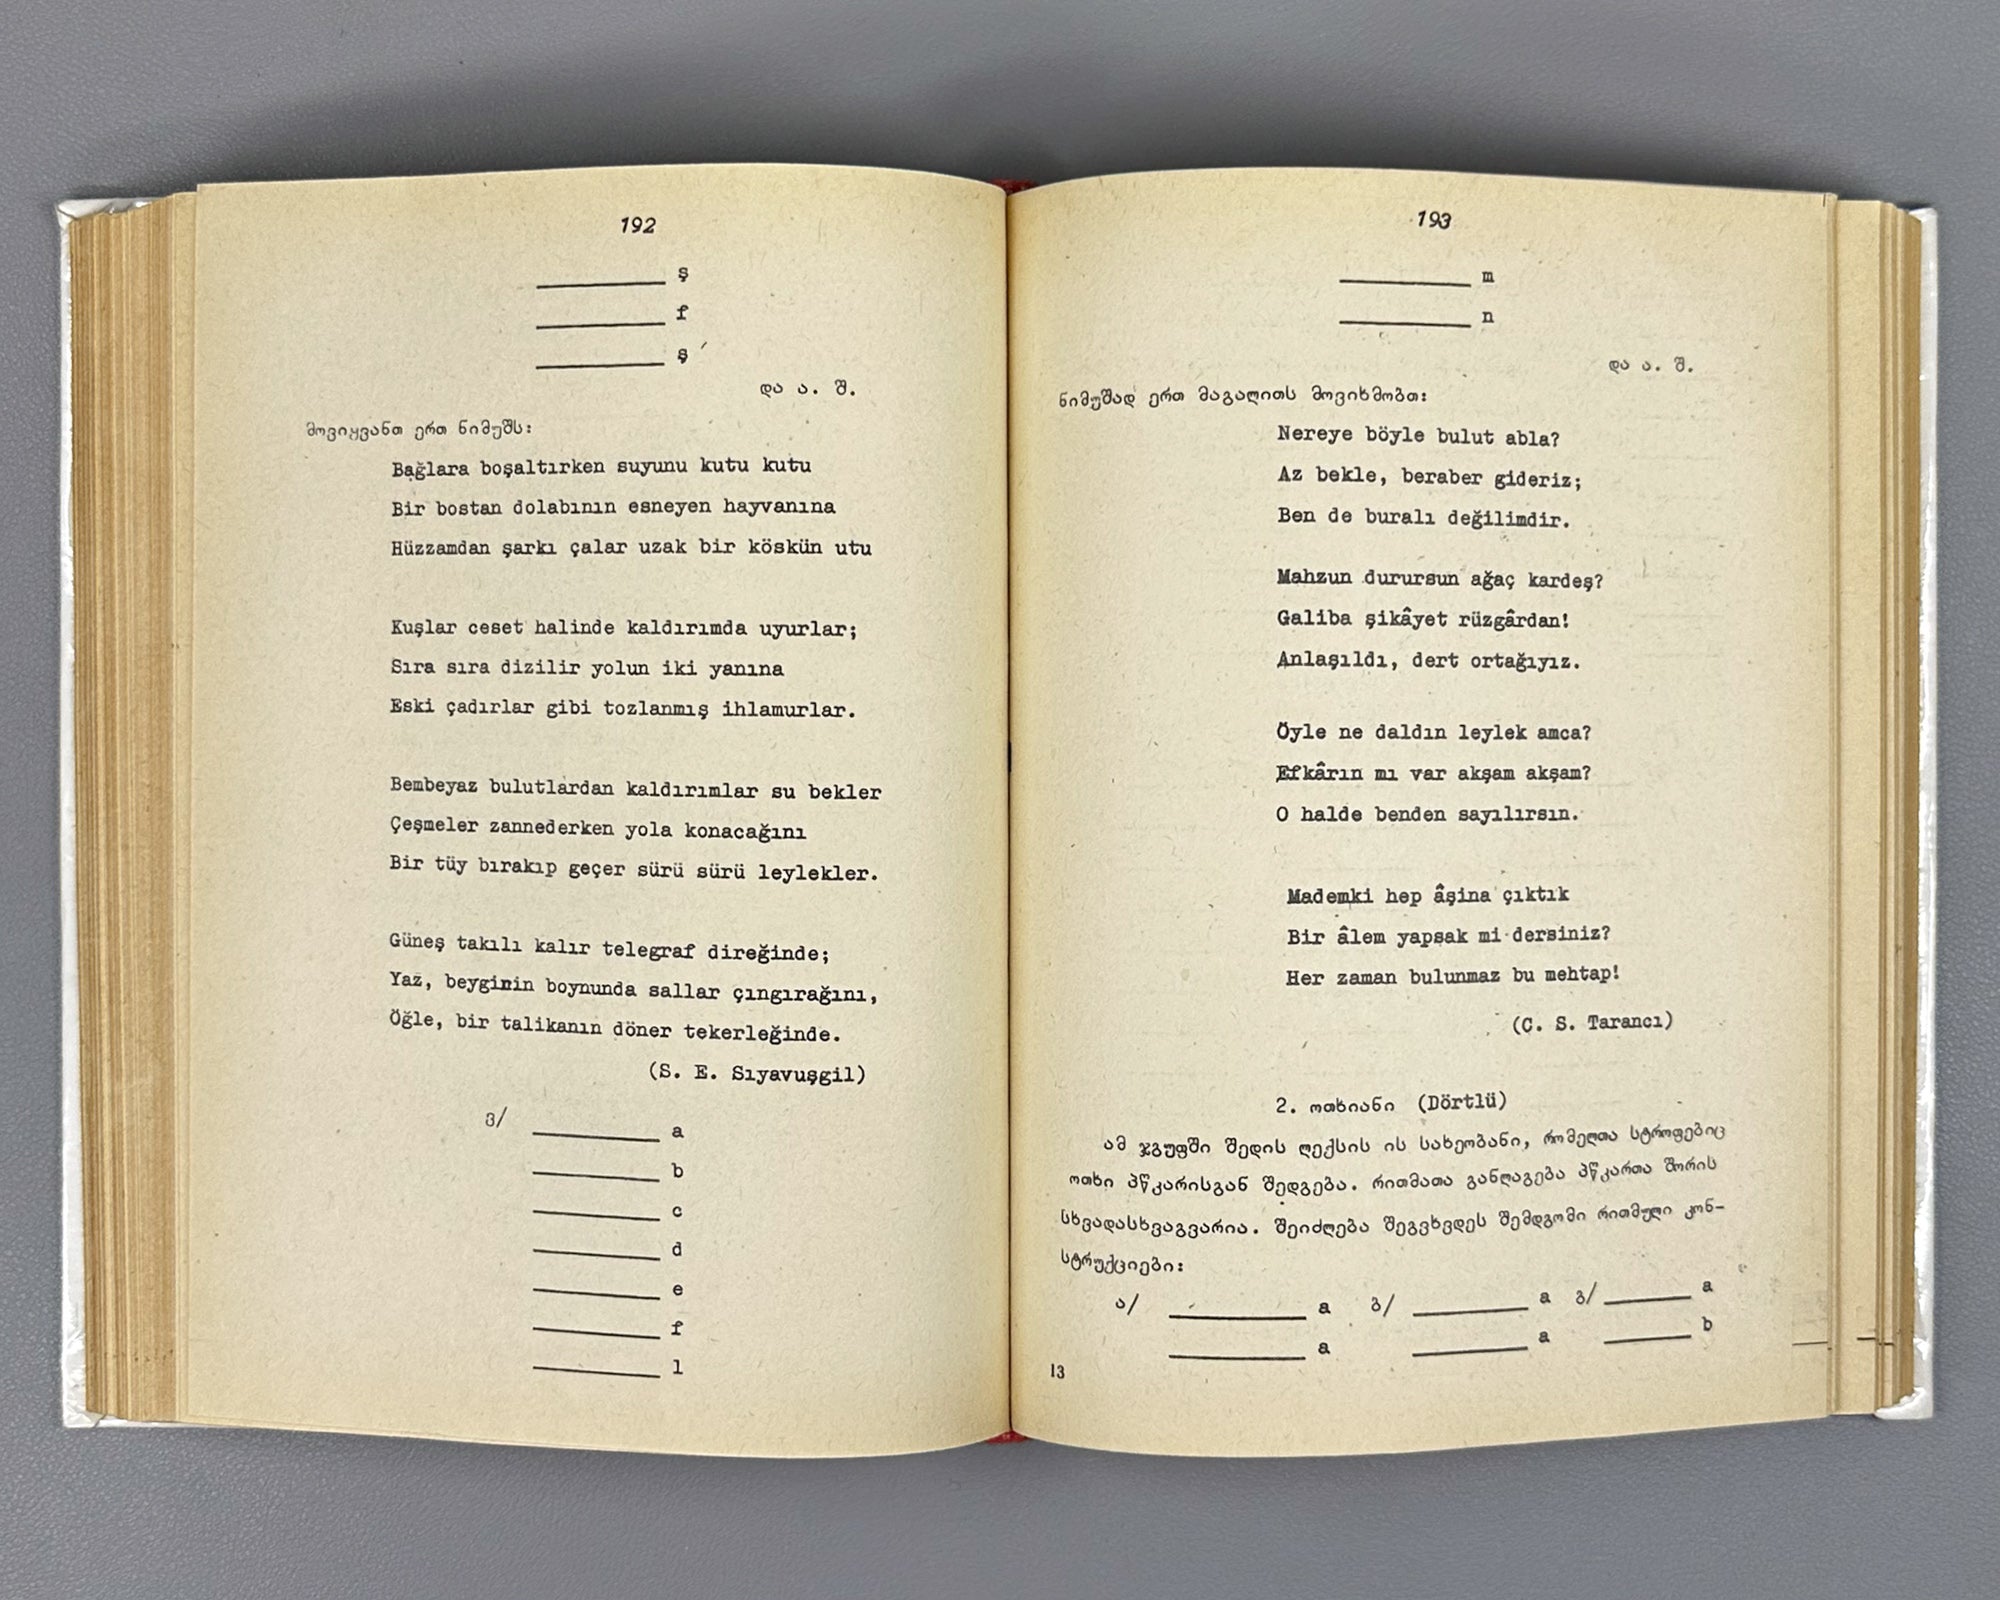 192
ş
f
ş
და ა. შ.
მოვიყვანთ ერთ ნიმუშს:
Bağlara boşaltırken suyunu kutu kutu
Bir bostan dolabının esneyen hayvanına
Hüzzamdan şarkı çalar uzak bir köskün utu
Kuşlar ceset halinde kaldırımda uyurlar;
Sıra sıra dizilir yolun iki yanına
Eski çadırlar gibi tozlanmış ihlamurlar.
Bembeyaz bulutlardan kaldırımlar su bekler
Çeşmeler zannederken yola konacağını
Bir tüy bırakıp geçer sürü sürü leylekler.
Güneş takılı kalır telegraf direğinde;
Yaz, beyginin boynunda sallar çıngırağını,
Öğle, bir talikanın döner tekerleğinde.
(S. E. Sıyavuşgil)
ვ/ a
b
c
d
e
f
l
193
m
n
და ა. შ.
ნიმუშად ერთ მაგალითს მოვიხმობთ:
Nereye böyle bulut abla?
Az bekle, beraber gideriz;
Ben de buralı değilimdir.
Mahzun durursun ağaç kardeş?
Galiba şikâyet rüzgârdan!
Anlaşıldı, dert ortağıyız.
Öyle ne daldın leylek amca?
Efkârın mı var akşam akşam?
O halde benden sayılırsın.
Mademki hep âşina çıktık
Bir âlem yapsak mi dersiniz?
Her zaman bulunmaz bu mehtap!
(C. S. Tarancı)
2. ოთხიანი (Dörtlü)
ამ ჯგუფში შედის ლექსის ის სახეობანი, რომელთა სტროფებიც
ოთხი პწკარისგან შედგება. რითმათა განლაგება პწკართა შორის
სხვადასხვაგვარია. შეიძლება შეგვხვდეს შემდგომი რითმული კონ-
სტრუქციები:
ა/ a ბ/ a გ/ a
a a b
13